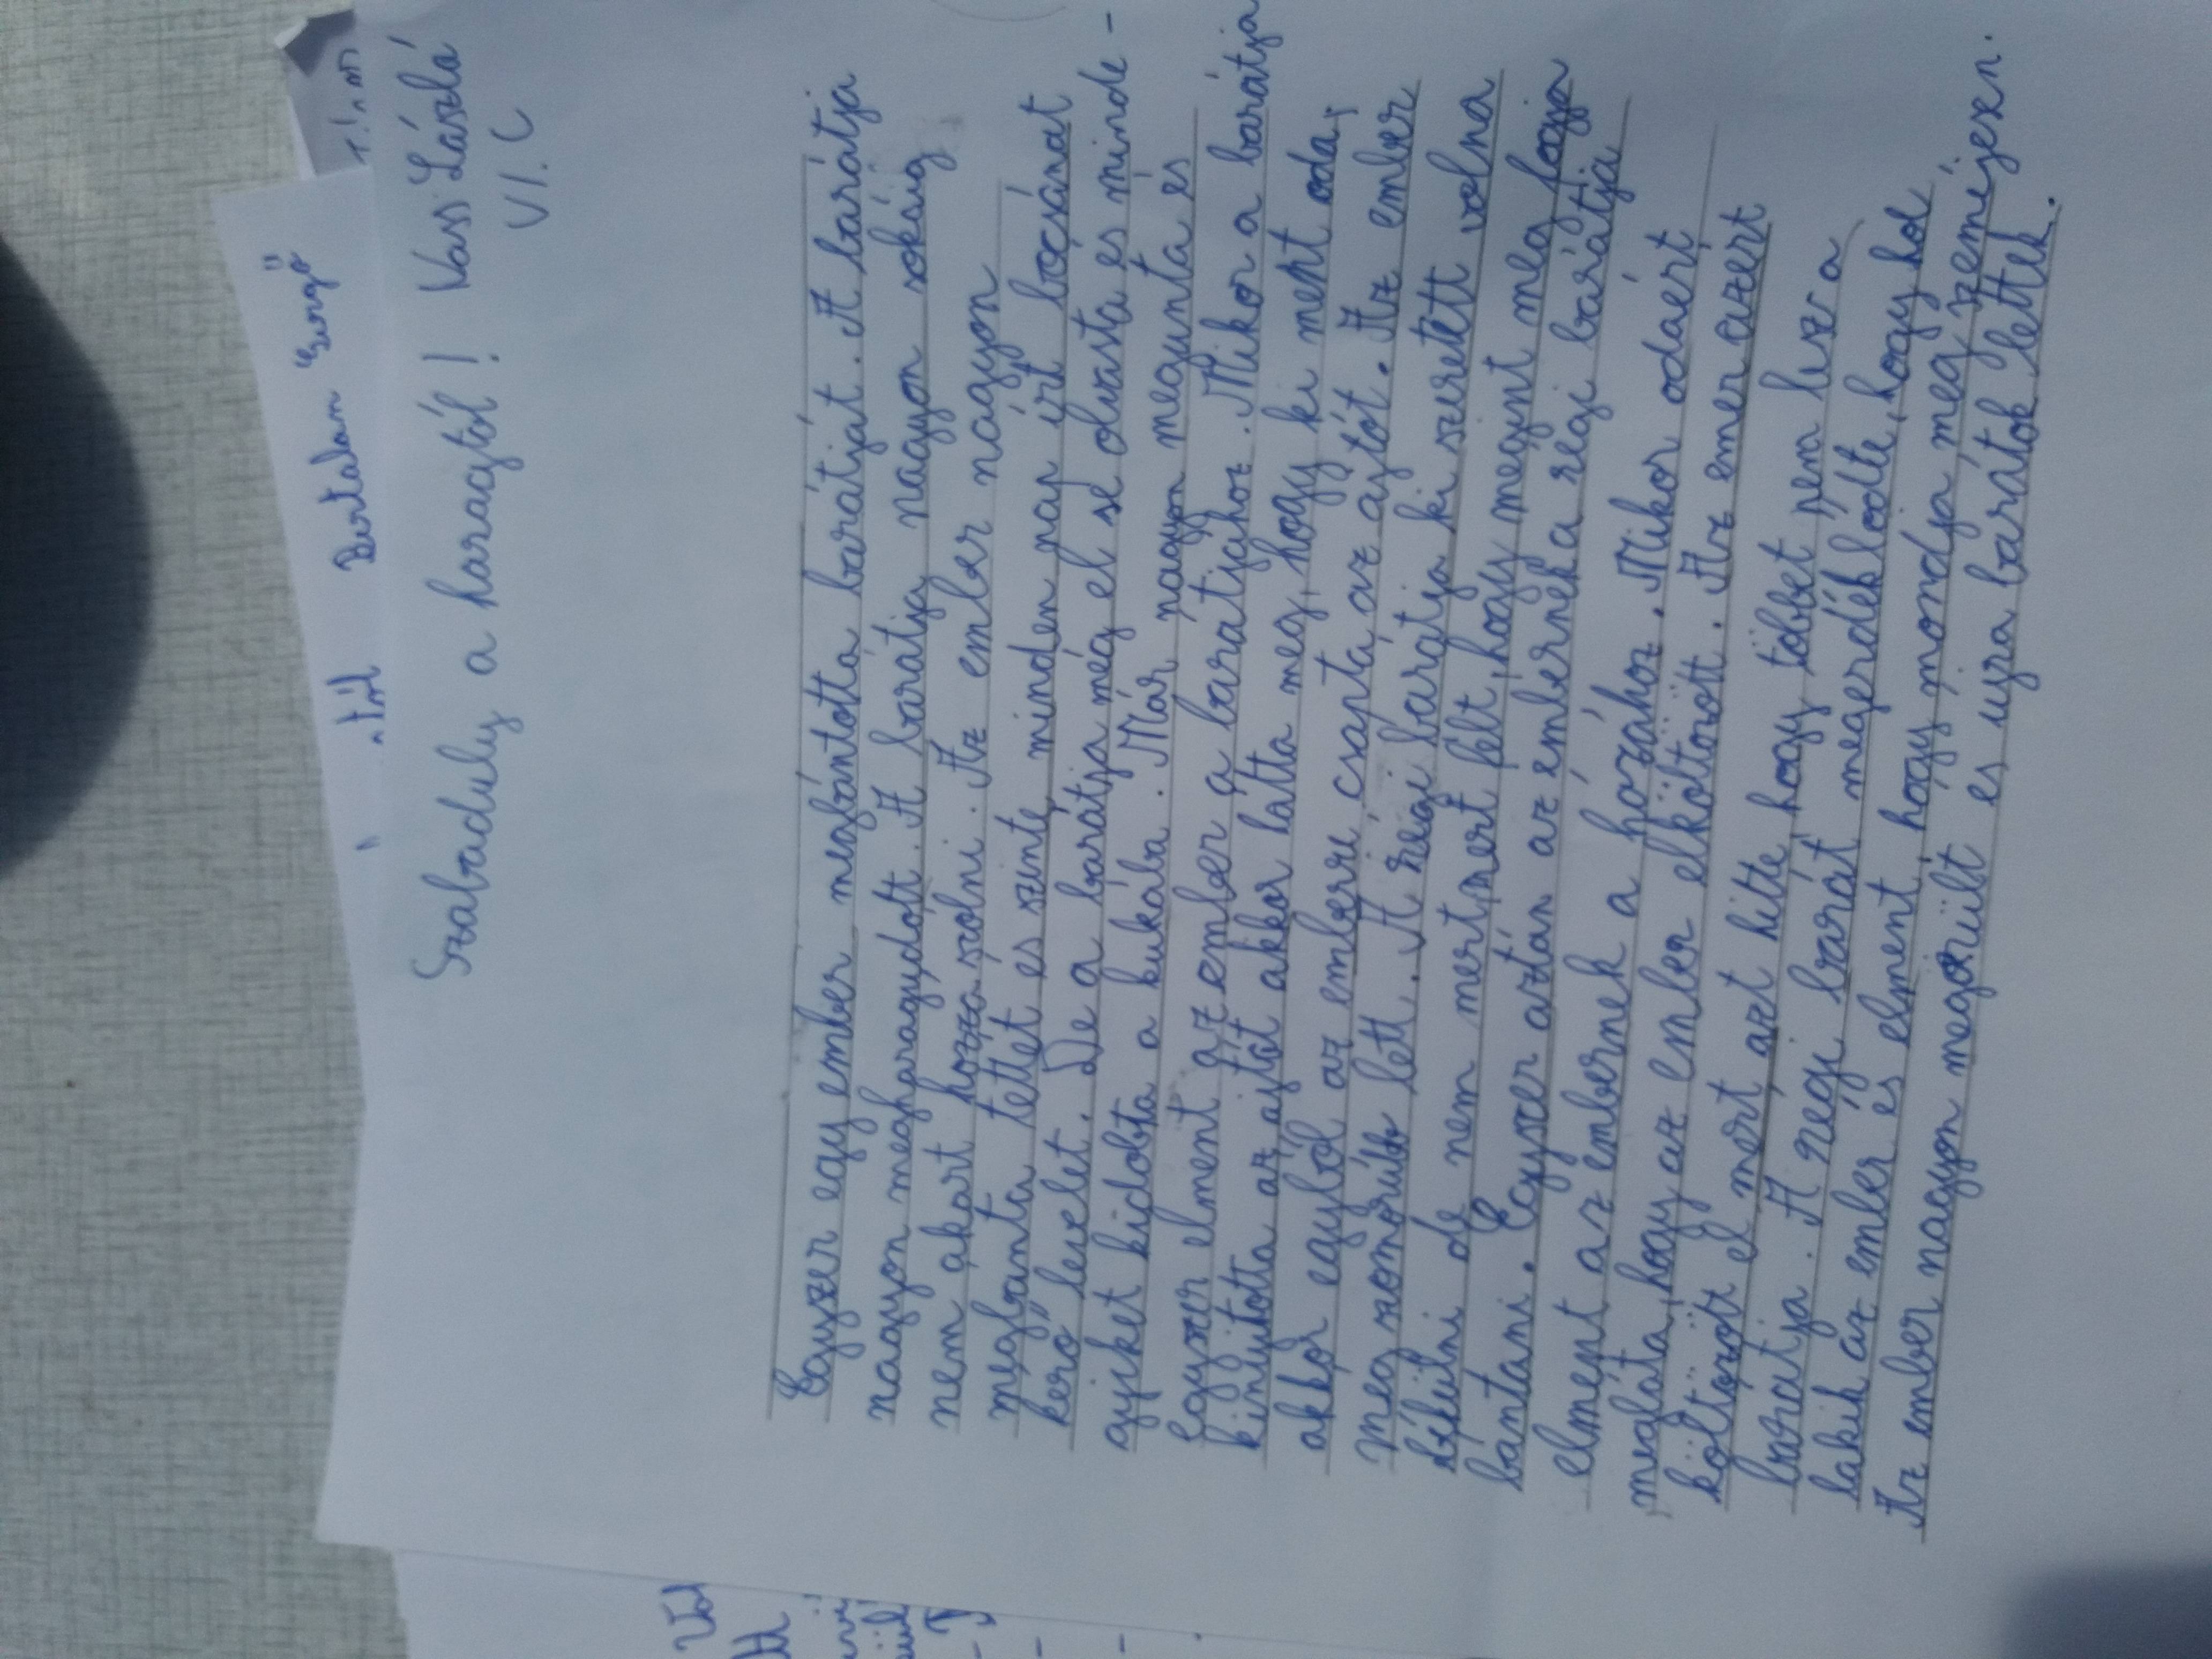 Bertalan Gergő
Szabadulj a haragtól! Vass Lászlá
VI. C
Egyszer egy ember megbántotta barátját. A barátja
nagyon megharagudott. A barátja nagyon sokáig
nem akart hozzá szólni. Az ember nagyon
megbánta tettét és szinte minden nap írt bocsánat
kérő levelet. De a barátja még el se olvasta és minde-
gyiket kidobta a kukába. Már nagyon megunta és
egyszer elment az ember a barátjához. Mikor a barátja
kinyitotta az ajtót akkor látta meg, hogy ki ment oda,
akkor egyből az emberre csapta az ajtót. Az ember
meg szomorú lett. A régi barátja ki szeretett volna
békülni de nem mert, mert félt, hogy megint meg fogja
bántani. Egyszer aztán az embernek a régi barátja
elment az embernek a házához. Mikor odaért
megláta, hogy az ember elköltözött. Az emer azért
költözött el mert azt hitte hogy többet nem lesz a
barátja. A régi barát megérdeklődte, hogy hol
lakik az ember és elment, hogy mondja meg személyesen.
Az ember nagyon megörült és ujra barátok lettek.